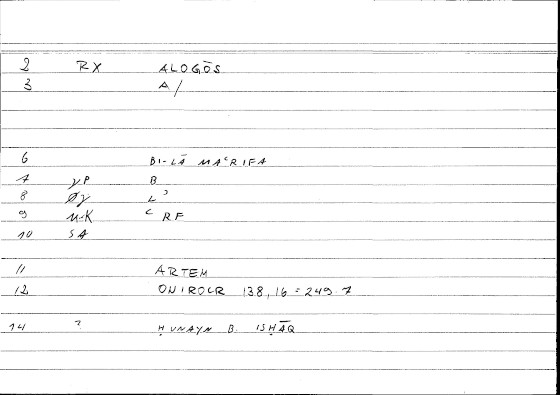 2 RX ALOGŌS
3 A/
6 BI-LĀ MAʿRIFA
7 γP B
8 Øγ Lʾ
9 u-K ʿRF
10 SA
11 ARTEM
12 ONIROCR 138,16 = 249.7
14 ? ḤUNAYN B. ISḤĀQ